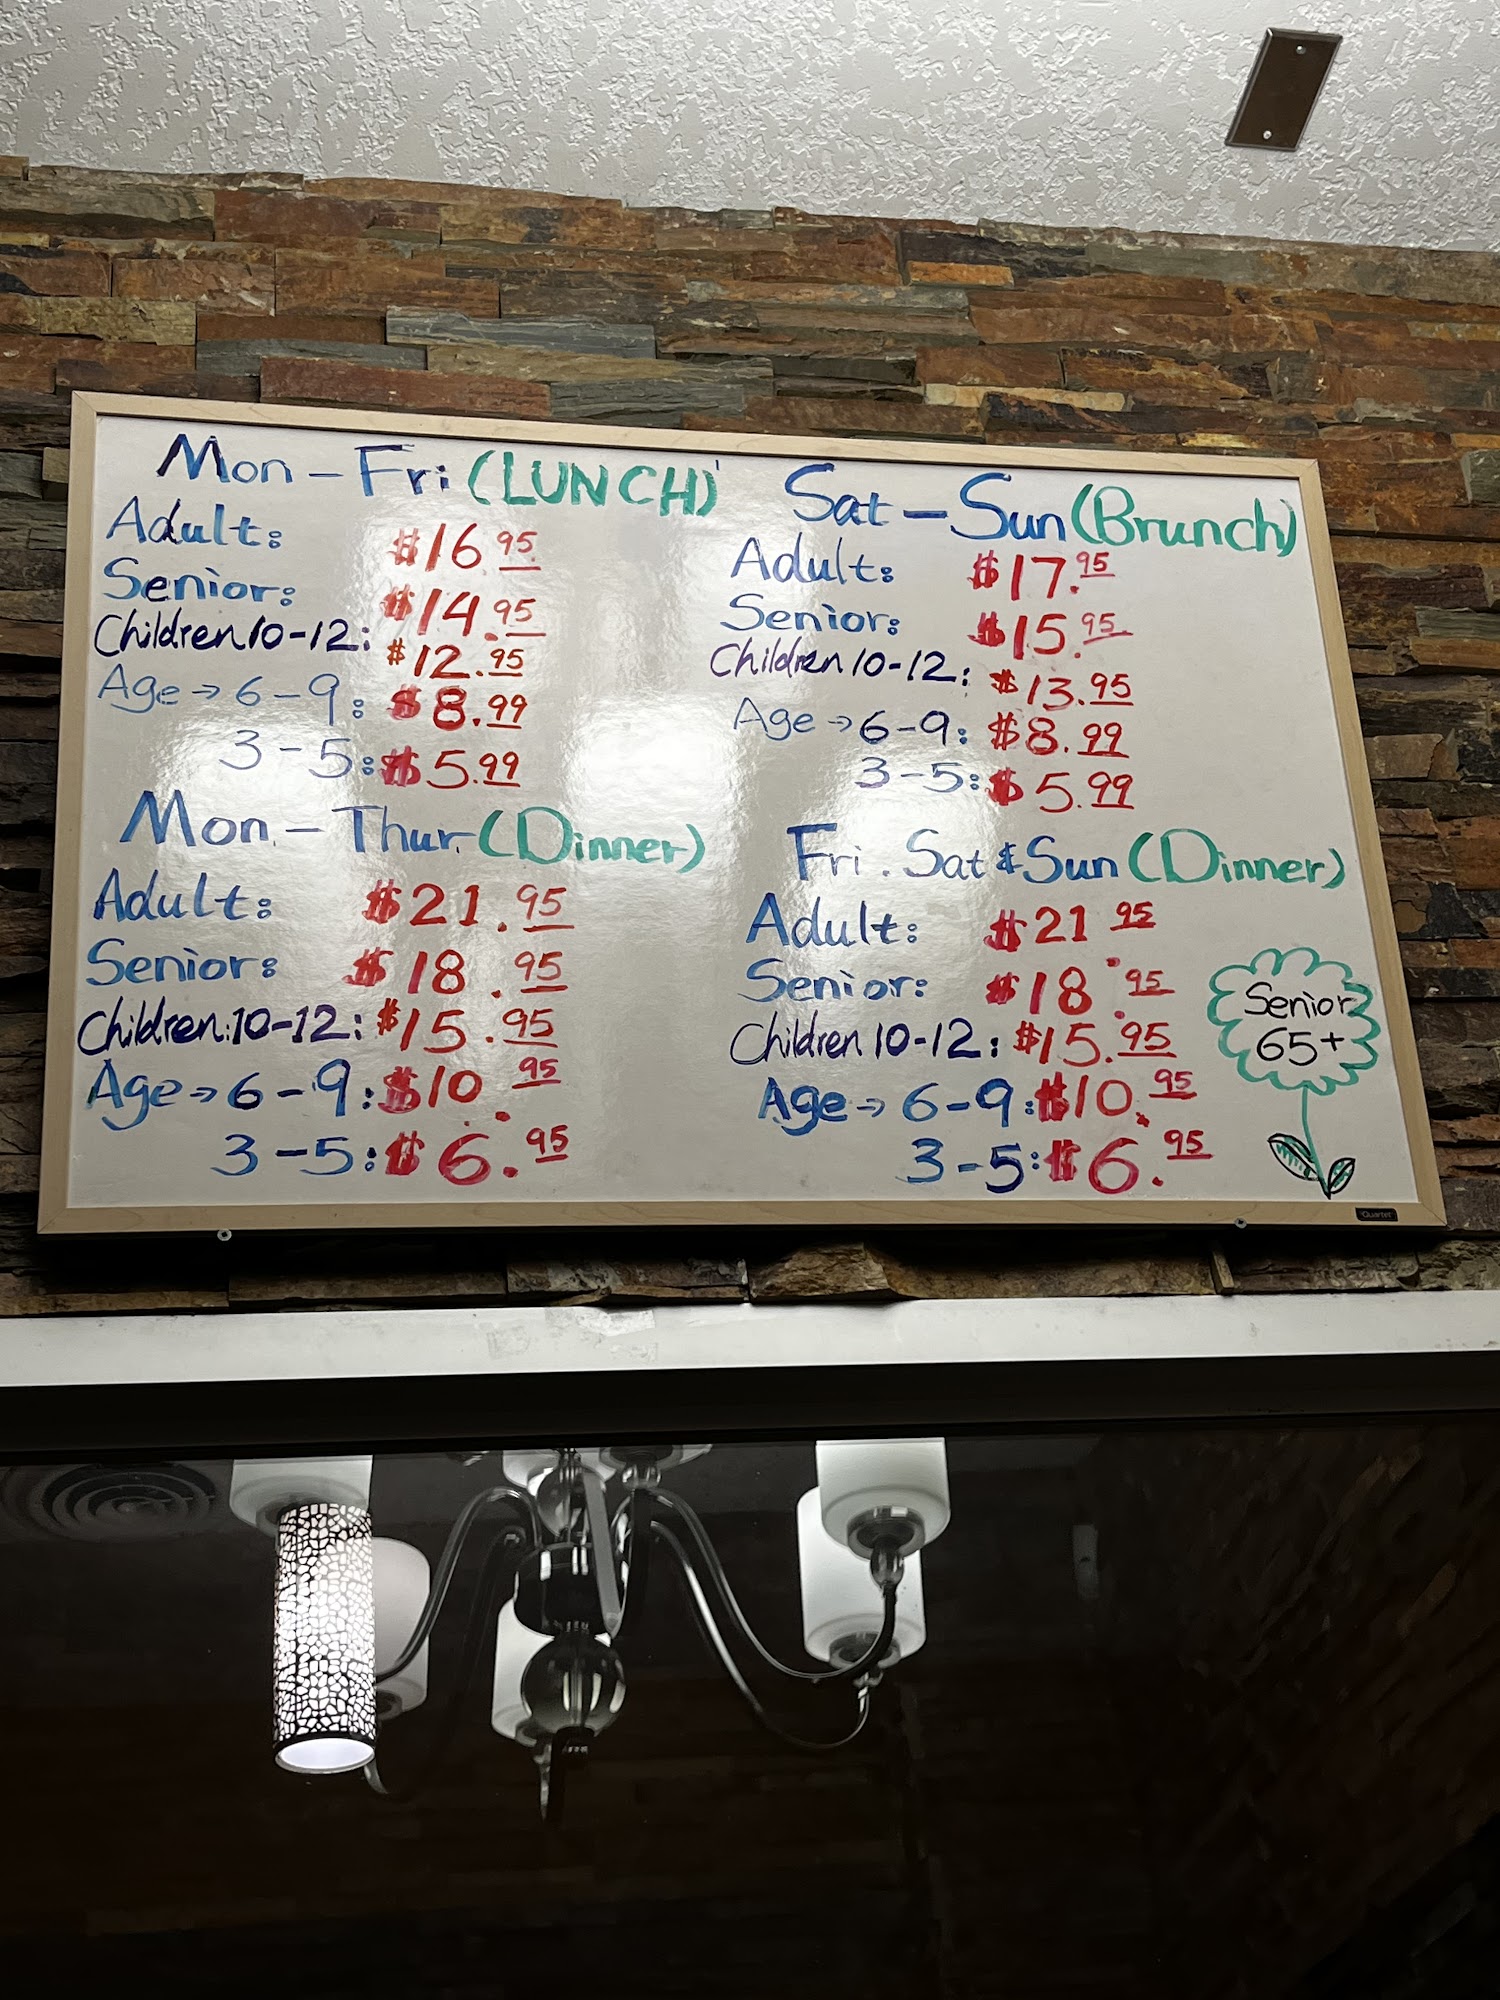 Mon - Fri (LUNCH)
Adult: $16.95
Senior: $14.95
Children 10-12: $12.95
Age → 6-9: $8.99
3-5: $5.99
Sat - Sun (Brunch)
Adult: $17.95
Senior: $15.95
Children 10-12: $13.95
Age → 6-9: $8.99
3-5: $5.99
Mon - Thur. (Dinner)
Adult: $21.95
Senior: $18.95
Children: 10-12: $15.95
Age → 6-9: $10.95
3-5: $6.95
Fri. Sat & Sun (Dinner)
Adult: $21.95
Senior: $18.95
Children 10-12: $15.95
Age → 6-9: $10.95
3-5: $6.95
Senior
65+
Quartet